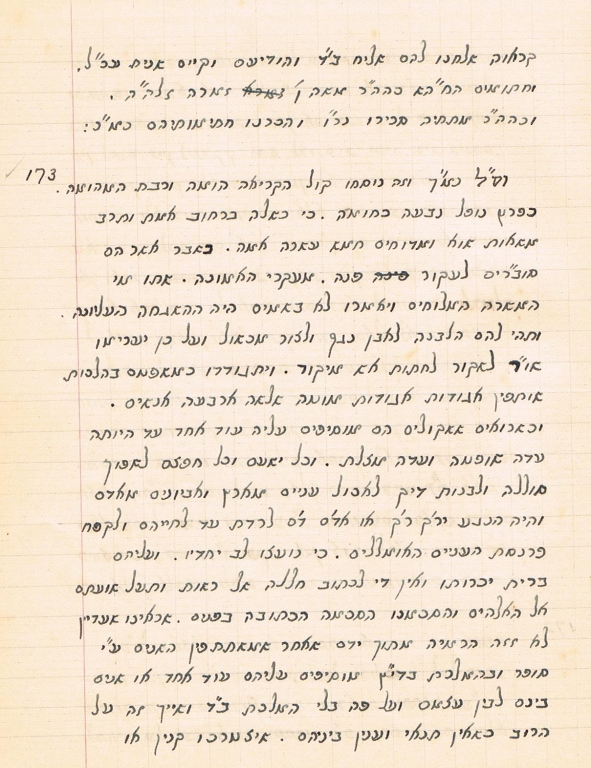 כראוה אלחנו להם אליה ב"ד והודיעם וקיים אנים עכ"ל.
וחתומים הח"הא כהה"ר משה ן' זמרה זלה"ה .
וכהה"ר מתתיה סבירו נר"ו והכרנו חתימותיהם כמ"כ:
173
רס"ל כמ"ך וזה ניסחו קול הקריאה הומה ורבת המהומה.
כפרץ נופל נבעה בחומה. כי כאלה ברחוב אמת ותרב
משאות שוא ומדוחים חמא עשרה אמה. כאבר אשר הם
סוברים לעקור פנה. מעקרי האמונה. אתו מי
המארה המלוחים ויאמרו לא באמים היה ההשגחה העליונה.
ותהי להם הלבנה לאבן נגף ולצור מכשול ועל כן יערימו
או"ר לאקור לחתות אש מיקוד. ויתגודדו כמשפטם בהלכות
שותפין אגודות אגודות מונה אלאה ארבעה אנאים.
וכארואים אאקולים הם מוסיפים עליה עוד אחד עד היותה
עדה שופטה ועדה מצלת. וכל ישעם וכל חפצם לשפוך
סוללה ולבנות דיק לאכול עניים מארץ ואביונים מאדם
והיה הנגע ירקרק או אדם דם לרדת עד לחייהם ולקפח
פרנסת העניים האומללים. כי נועצו לב יחדיו. ועליהם
ברית יכרותו ואין די לכתוב חללה אל ראות ותעל שועתם
אל האלהים והסכמנו הסכמה הכתובה בפנים. אראינו אעדיין
לא זזה הרמיה מתוך ידם אאחר אמשתתפין האנים ע"י
סופר ובהמלכת בדי"ץ מוסיפים עליהם עוד אחד או אנים
בינם לבין עצמם ועל פה בלי המלכת ב"ד ואייך זה על
הרוב כאאין תנאי וענין ביניהם. איצטרכו קנין או